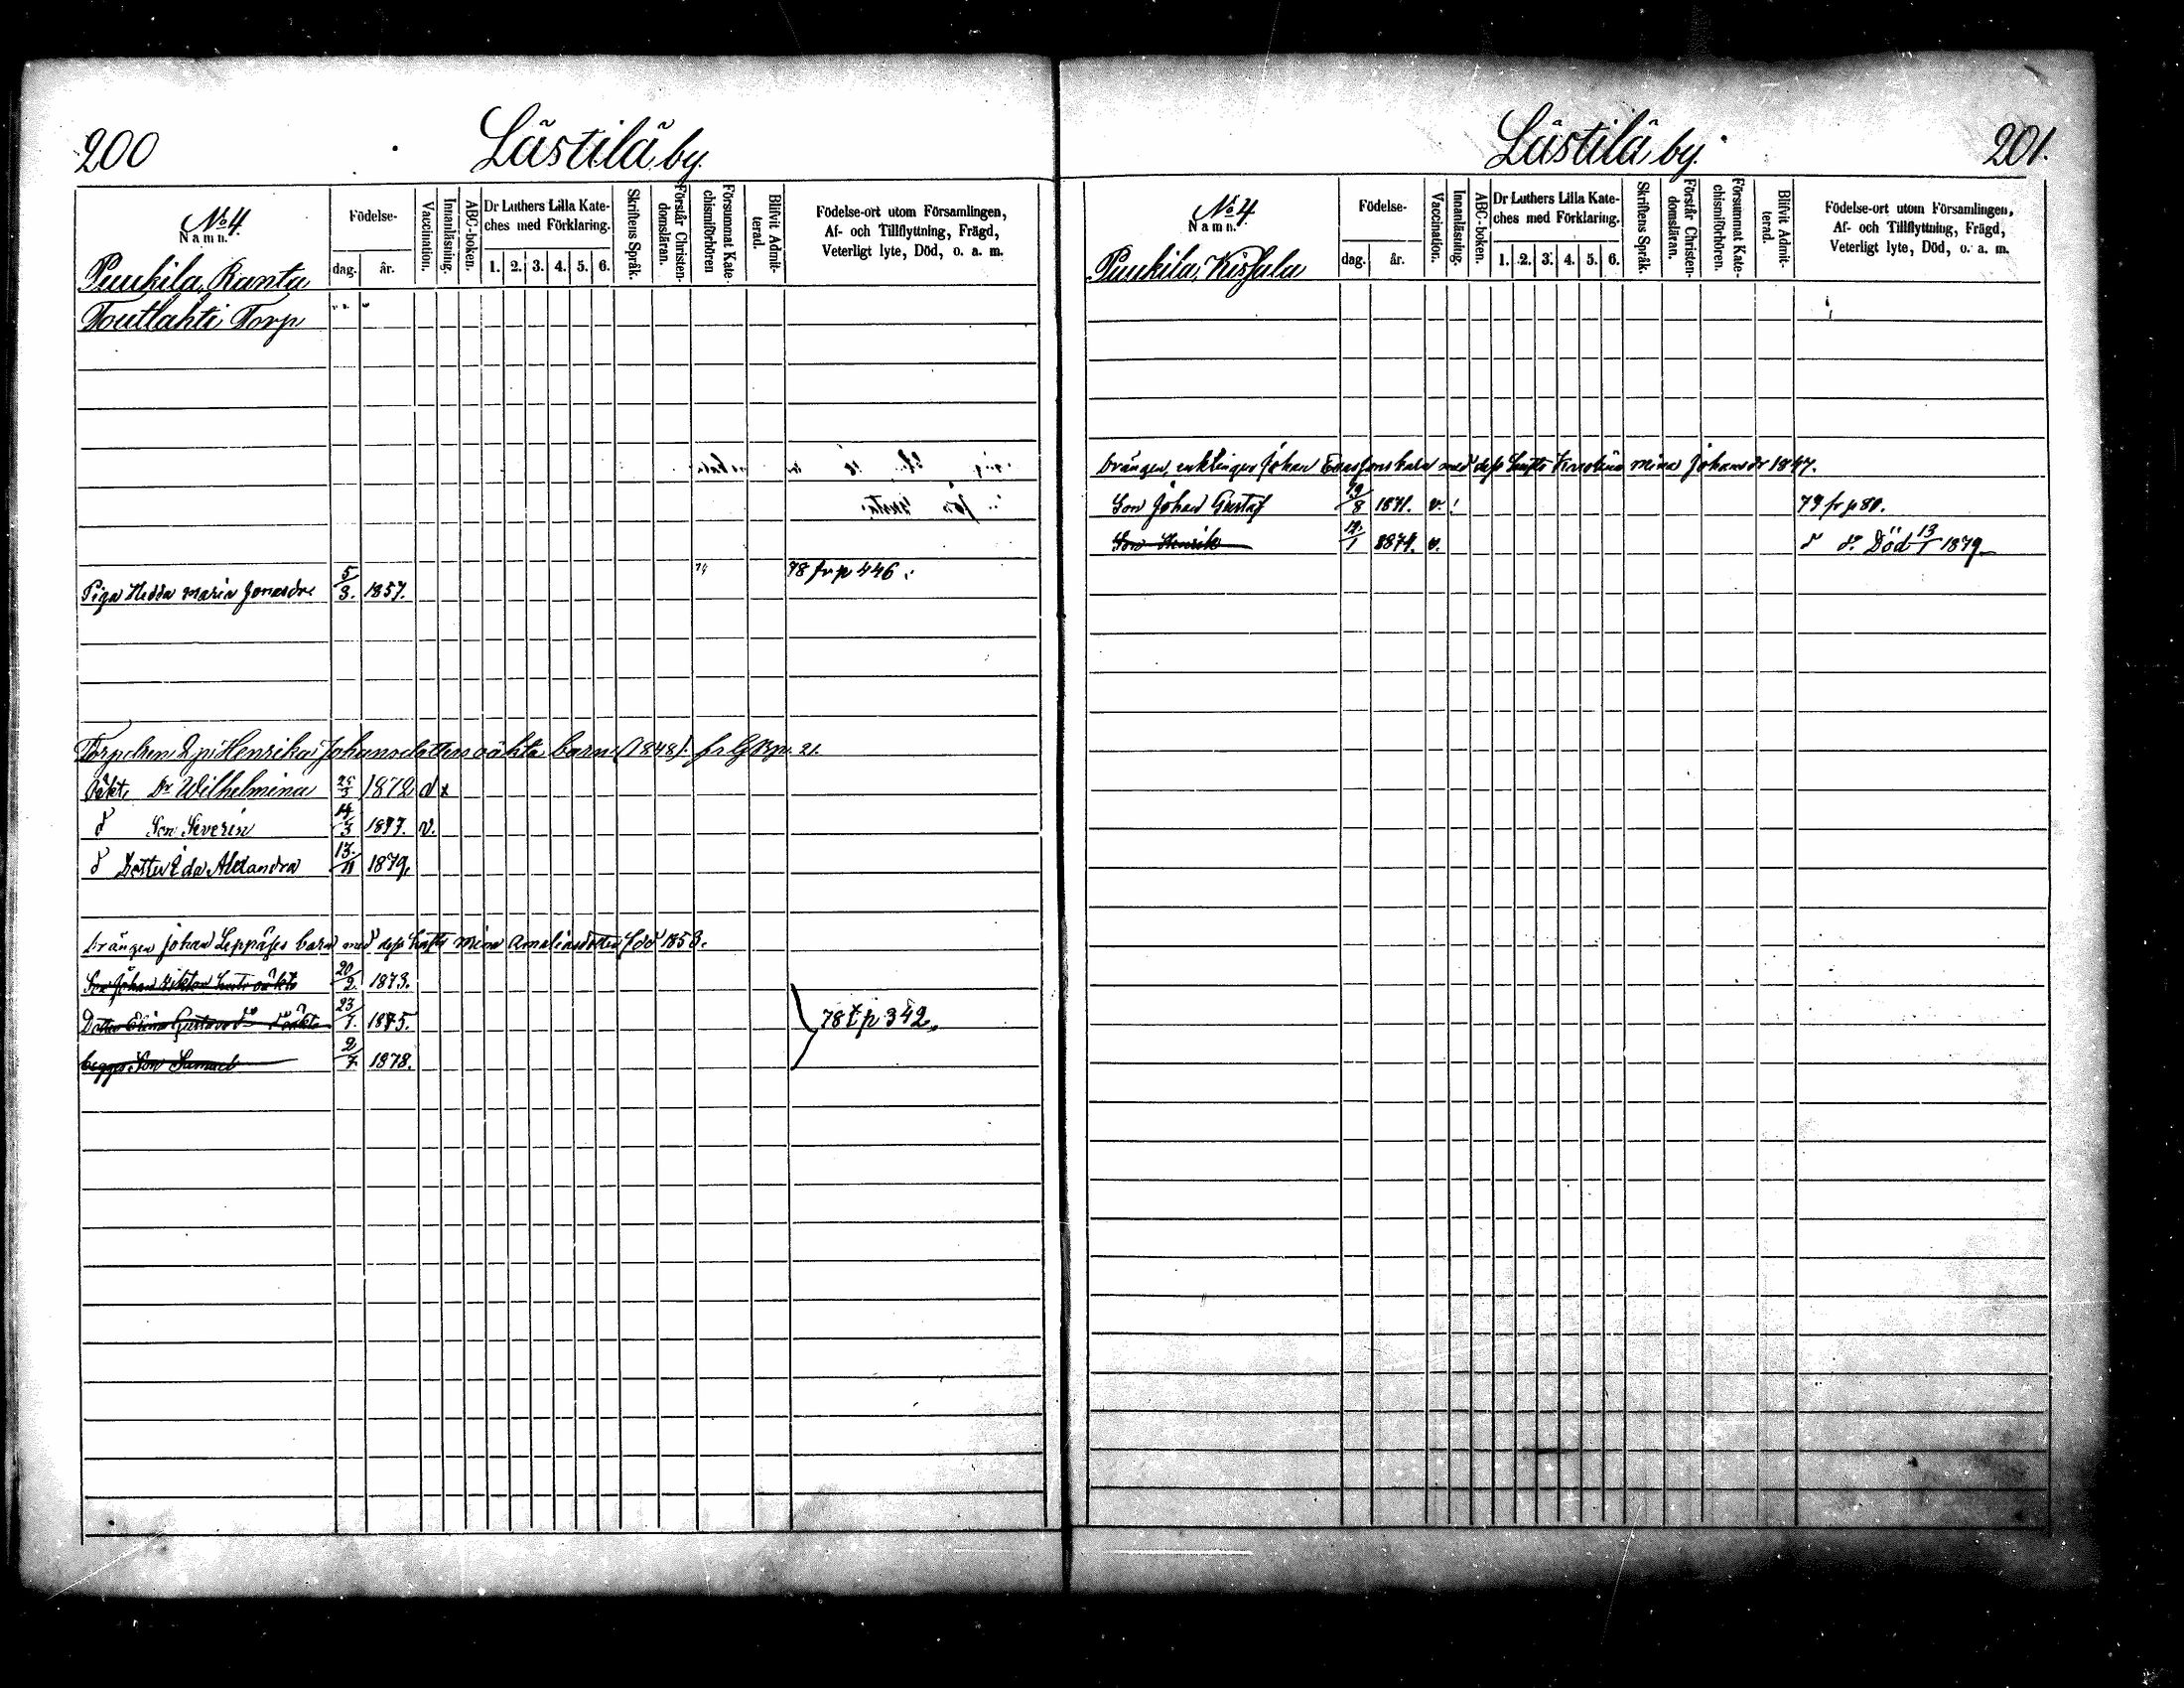 200
Lästilä by.
No 4
Namn.
Födelse-
dag.
år.
Vaccination.
Innanläsning.
ABC-boken.
Dr Luthers Lilla Kate-
ches med Förklaring.
1. 2. 3. 4. 5. 6.
Skriftens Språk.
Förstår Christen-
domsläran.
Försummat Kate-
chismiförhören
Blifvit Admit-
terad.
Födelse-ort utom Församlingen,
Af- och Tillflyttning, Frägd,
Veterligt lyte, Död, o. a. m.
Puukila, Ranta
Toutlahti Torp
78 fr p 446
Piga Hedda Maria Jonasdr 5/3. 1857.
Henrika Johansdotters oäkta barn (1848). fr p. 21.
Oäkt. Dr Wilhelmina 1872
do Son Severin 14/3 1877. v.
do Dotter Ida Alexandra 13./11 1879.
Drängen Johan Leppäjes barn med dess hustru Mina Amaliasdotter född 1853.
Son Johan Viktor oäkta 20/2. 1873.
Dotter Elina Gustava do oäkta 23/1. 1875.
78 t p 342.
begges Son Samuel 2/7 1878.
201.
Lästilä by.
No 4
Namn.
Födelse-
dag.
år.
Vaccination.
Innanläsning.
ABC-boken.
Dr Luthers Lilla Kate-
ches med Förklaring.
1. 2. 3. 4. 5. 6.
Skriftens Språk.
Förstår Christen-
domsläran.
Försummat Kate-
chismiförhören.
Blifvit Admit-
terad.
Födelse-ort utom Församlingen,
Af- och Tillflyttning, Frägd,
Veterligt lyte, Död, o. a. m.
Puukila, Kissala
Drängen, enklingen Johan med dess hustru Karolina Mina Johansdr 1847.
Son Johan Gustaf 19/8 1871. v. 79 fr p 80.
Son Henrik 12/1 1874. v. do do Död 13/1 1879